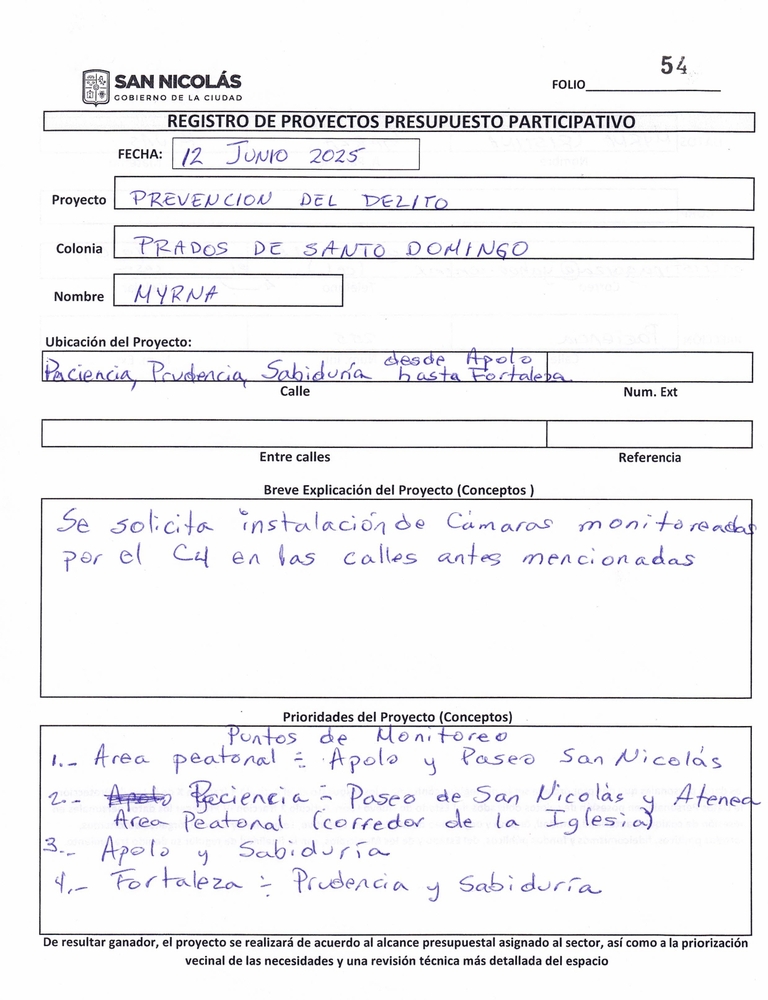 54
SAN NICOLÁS
GOBIERNO DE LA CIUDAD
FOLIO
REGISTRO DE PROYECTOS PRESUPUESTO PARTICIPATIVO
FECHA: 12 JUNIO 2025
Proyecto PREVENCION DEL DELITO
Colonia PRADOS DE SANTO DOMINGO
Nombre MYRNA
Ubicación del Proyecto:
Paciencia, Prudencia, Sabiduría desde Apolo
hasta Fortaleza
Calle Num. Ext
Entre calles Referencia
Breve Explicación del Proyecto (Conceptos )
Se solicita instalación de Cámaras monitoreadas
por el C4 en las calles antes mencionadas
Prioridades del Proyecto (Conceptos)
Puntos de Monitoreo
1.- Area peatonal = Apolo y Paseo San Nicolás
2.- Apolo Paciencia = Paseo de San Nicolás y Atenea
Area Peatonal (corredor de la Iglesia)
3.- Apolo y Sabiduría
4.- Fortaleza = Prudencia y Sabiduría
De resultar ganador, el proyecto se realizará de acuerdo al alcance presupuestal asignado al sector, así como a la priorización
vecinal de las necesidades y una revisión técnica más detallada del espacio